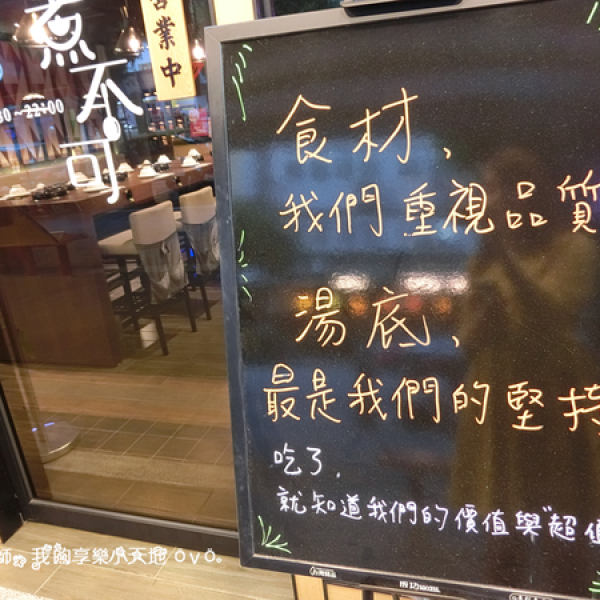 煮不可
營業中
~22:00
食材、
我們重視品質
湯底、
最是我們的堅持
吃了,
就知道我們的價值與"超值
師。我的享樂小天地 ōvō。